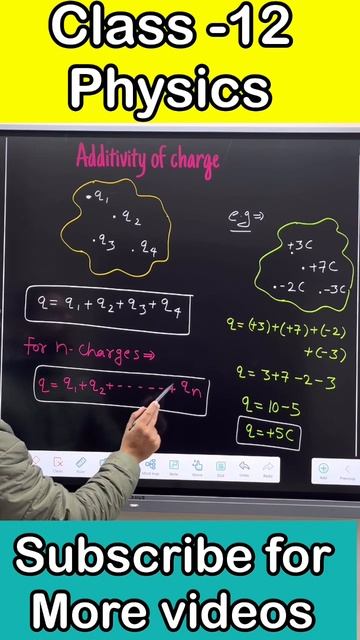 Class -12
Physics
Additivity of charge
q₁
q₂
q₃
q₄
q = q₁+q₂+q₃+q₄
for n-charges ⇒
q = q₁+q₂+------+qn
e.g ⇒
+3C
+7C
-2C
-3C
q = (+3)+(+7)+(-2)
+(-3)
q = 3+7-2-3
q = 10-5
q = +5C
Subscribe for
More videos